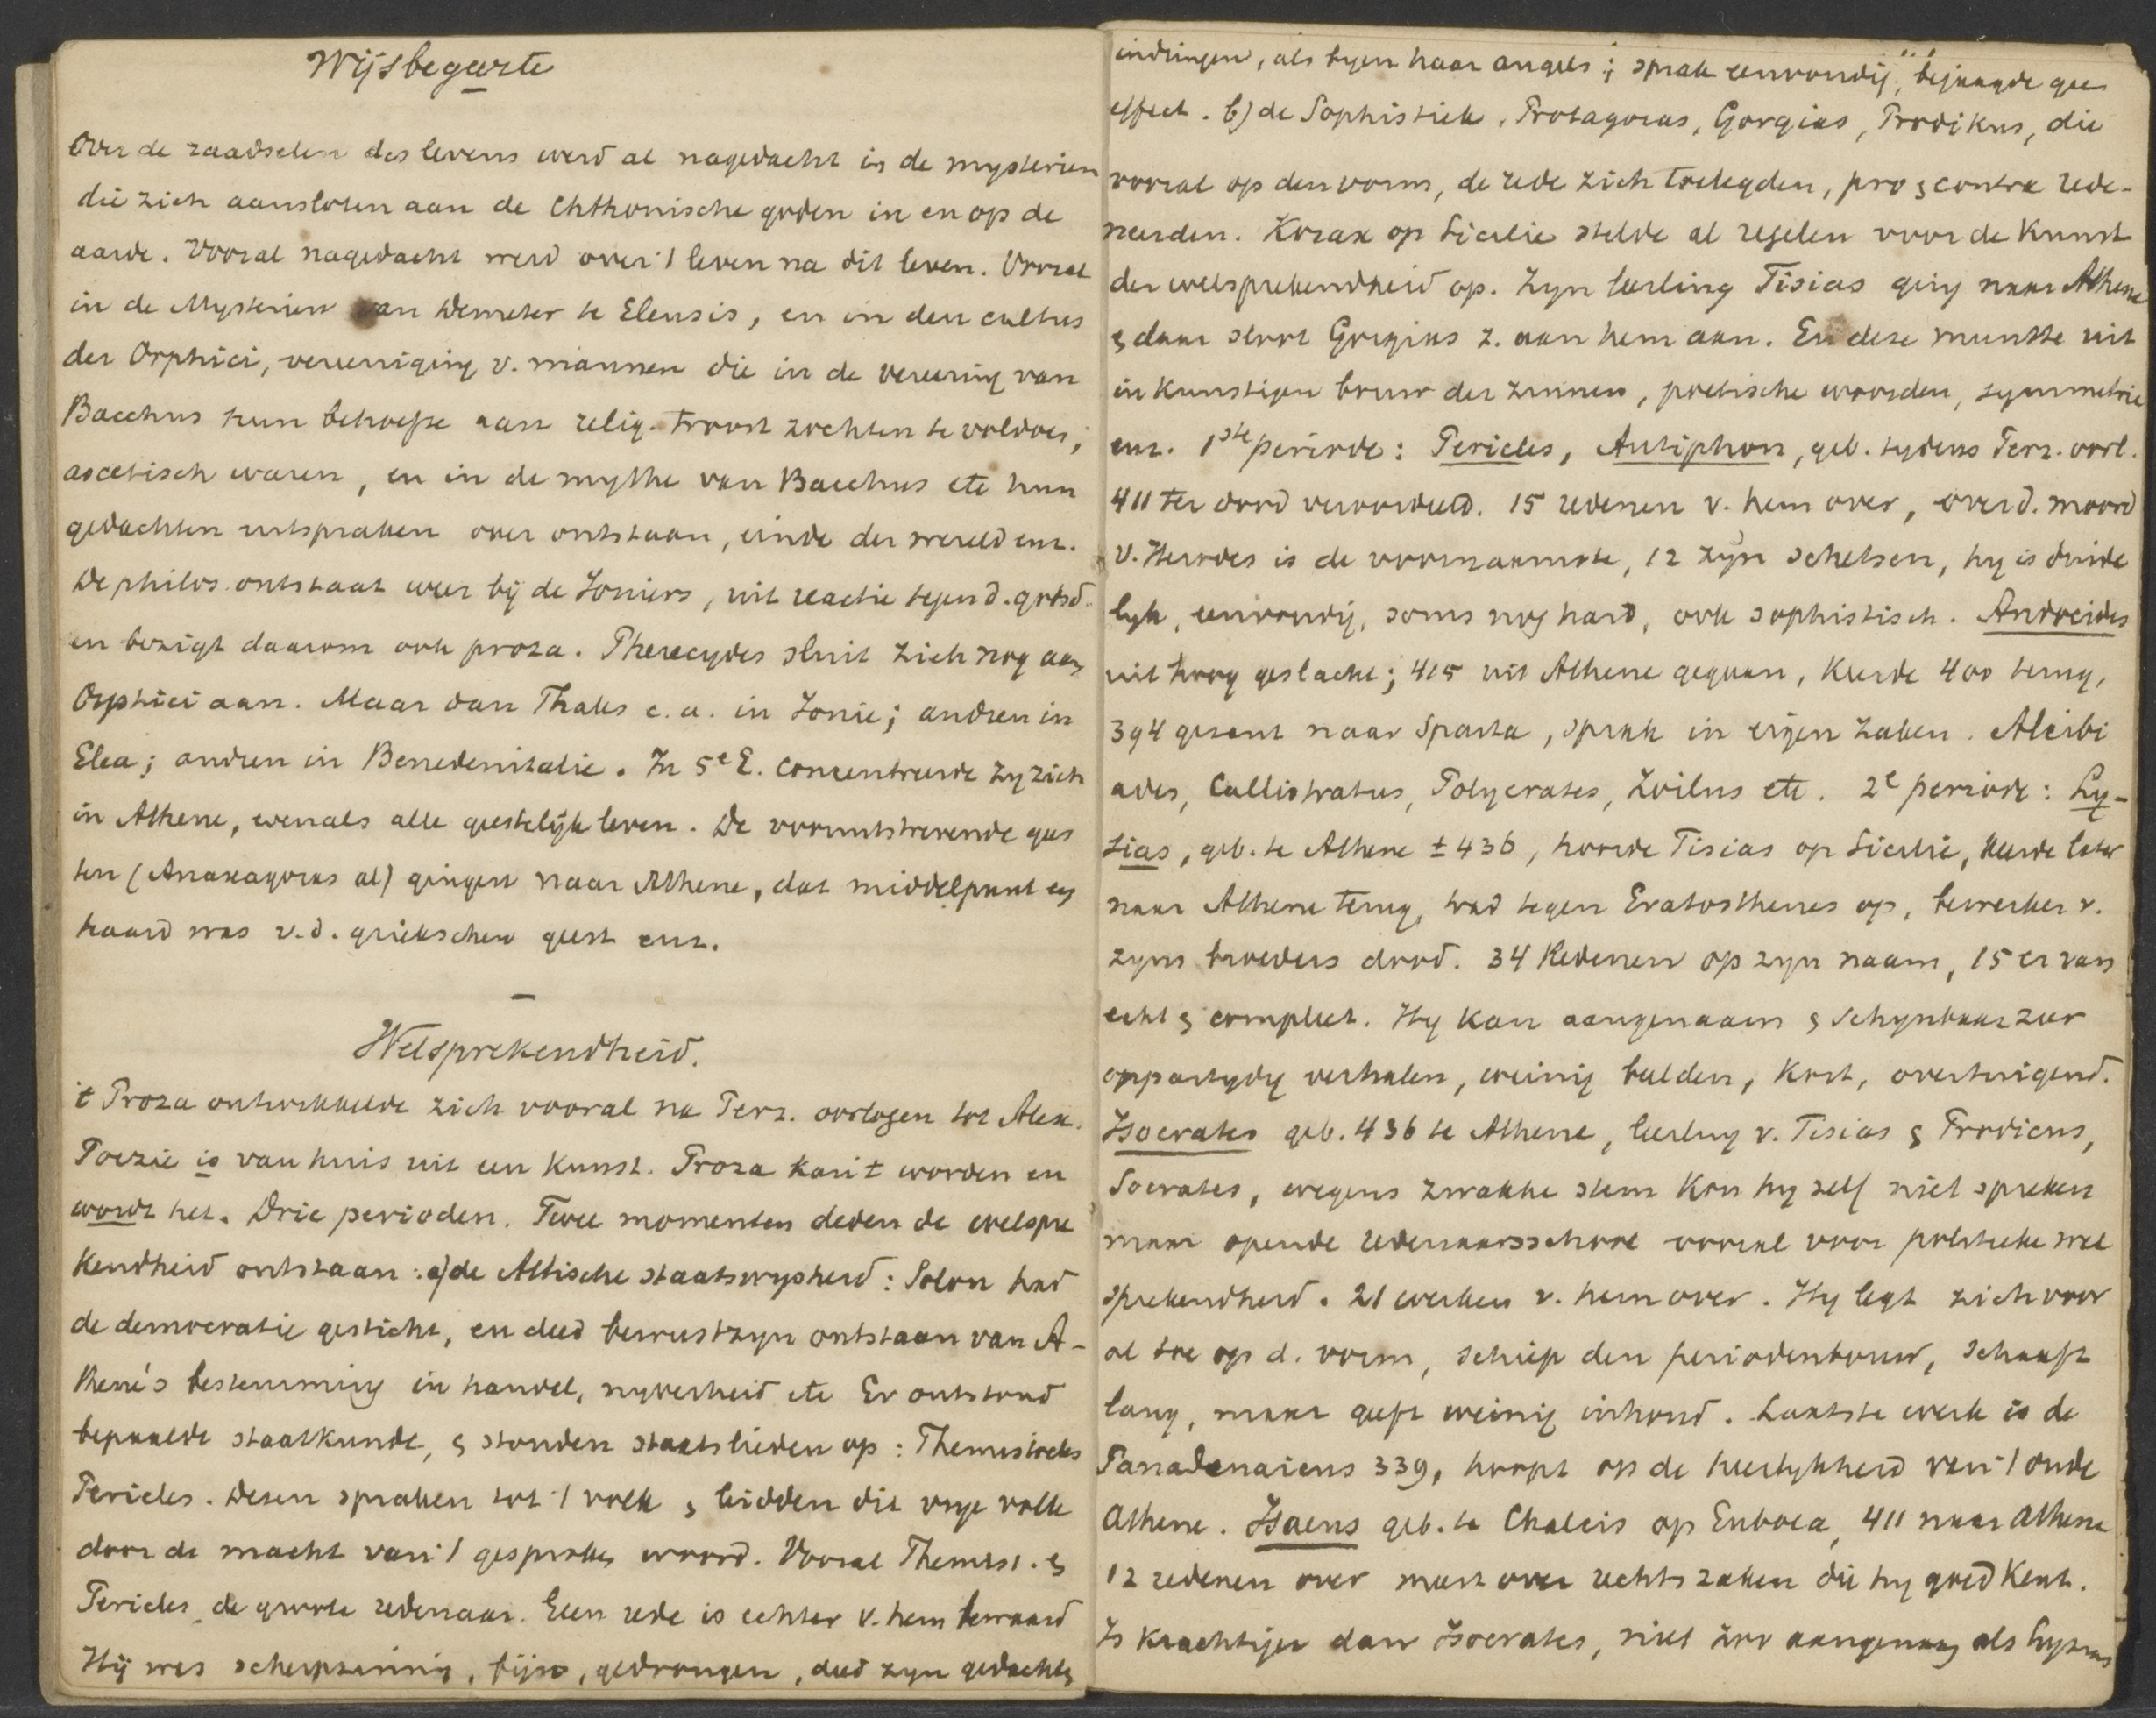 Wijsbegeerte
Over de raadselen des levens werd al nagedacht in de mysterien
die zich aansloten aan de Chthonische goden in en op de
aarde. Vooral nagedacht werd over 't leven na dit leven. Vooral
in de Mysterien van Demeter te Eleusis, en in den cultus
der Orphici, vereeniging v. mannen die in de vereering van
Bacchus hun behoefte aan relig. troost zochten te voldoen,
ascetisch waren, en in de mythe van Bacchus etc hun
gedachten uitspraken over ontstaan, einde der wereld enz.
De philos. ontstaat weer bij de Ioniers, uit reactie tegen d. gtsd.
en bezigt daarom ook proza. Pherecydes sluit zich nog aan
Orphici aan. Maar dan Thales e.a. in Ionie; andren in
Elea; andren in Benedenitalie. In 5e E. concentreerde zy zich
in Athene, evenals alle geestelijk leven. De vooruitstrevende gees
ten (Anaxagoras al) gingen naar Athene, dat middelpunt en
haard was v.d. griekschen geest enz.
Welsprekendheid.
't Proza ontwikkelde zich vooral na Perz. oorlogen tot Alex.
Poezie is van huis uit een kunst. Proza kan 't worden en
wordt het. Drie perioden. Twee momenten deden de welspre
kendheid ontstaan: a) de Attische staatswysheid: Solon had
de democratie gesticht, en deed bewustzyn ontstaan van A-
thene's bestemming in handel, nyverheid etc Er ontstond
bepaalde staatkunde, & stonden staatslieden op: Themistocles
Pericles. Dezen spraken tot 't volk & leidden dit vrye volk
door de macht van 't gesproken woord. Vooral Themist. &
Pericles de groote redenaar. Geen rede is echter v. hem bewaard
Hij was scherpzinnig, fijn, gedrongen, deed zyn gedachten
indringen, als byen haar angels; sprak eenvoudig, bejaagde geen
effect. b) de Sophistiek. Protagoras, Gorgias, Prodikus, die
vooral op den vorm, de rede zich toelegden, pro & contra rede-
neerden. Korax op Sicilie stelde al regelen voor de kunst
der welsprekendheid op. Zyn leerling Tisias ging naar Athene
& daar sloot Gorgias z. aan hem aan. En deze muntte uit
in kunstigen bouw der zinnen, poetische woorden, symmetrie
enz. 1ste periode: Pericles, Antiphon, geb. tydens Perz. oorl.
411 ter dood veroordeeld. 15 redenen v. hem over, over d. moord
v. Herodes is de voornaamste, 12 zyn schetsen, hy is duide
lyk, eenvoudig, soms nog hard, ook sophistisch. Andocides
uit hoog geslacht; 415 uit Athene gegaan, keerde 400 terug,
394 gezant naar Sparta, sprak in eigen zaken. Alcibi
ades, Callistratus, Polycrates, Zoilus etc. 2e periode: Ly-
sias, geb. te Athene ± 436, hoorde Tisias op Sicilie, keerde later
naar Athene terug, trad tegen Eratosthenes op, bewerker v.
zyns broeders dood. 34 Redenen op zyn naam, 15 er van
echt & compleet. Hy kan aangenaam & schynbaar zeer
onpartydig verhalen, weinig beelden, kort, overtuigend.
Isocrates geb. 436 te Athene, leerling v. Tisias & Prodicus,
Socrates, wegens zwakke stem kon hy zelf niet spreken
maar opende redenaarsschool vooral voor politieke wel
sprekendheid. 21 werken v. hem over. Hy legt zich voor
al toe op d. vorm, schiep den periodenbouw, schaaft
lang, maar geeft weinig inhoud. Laatste werk is de
Panadenaicus 339, hoopt op de heerlykheid van 't oude
Athene. Isaeus geb. te Chalcis op Euboea, 411 naar Athene
12 redenen over meest over rechtszaken die hy goed kent.
Is krachtiger dan Isocrates, niet zoo aangenaam als Lysias